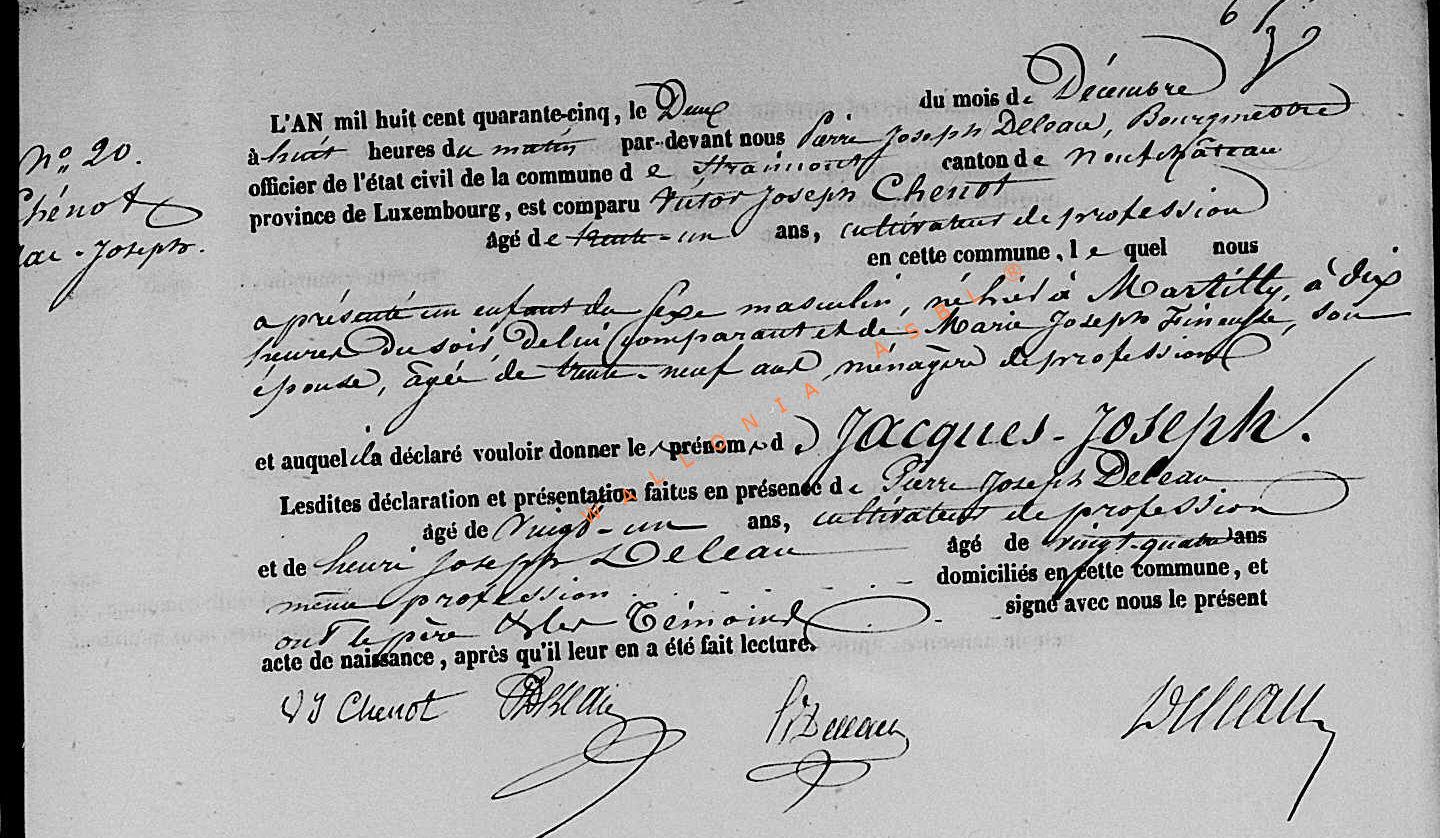 6
L'AN mil huit cent quarante-cinq, le Deux du mois de Décembre
à huit heures du matin par-devant nous Pierre Joseph Deleau, Bourgmestre
officier de l'état civil de la commune de Straimont canton de Neufchâteau
province de Luxembourg, est comparu Victor Joseph Chenot
âgé de trente-un ans, cultivateur de profession
en cette commune, lequel nous
a présenté un enfant du sexe masculin, né hier à Martilly, à dix
heures du soir, de lui comparant et de Marie Joseph, son
épouse, âgée de trente-neuf ans, ménagère de profession
et auquel il a déclaré vouloir donner les prénoms de Jacques-Joseph.
Lesdites déclaration et présentation faites en présence de Pierre Joseph Deleau
âgé de vingt-un ans, cultivateur de profession
et de henri Joseph Deleau âgé de vingt-quatre ans
même profession domiciliés en cette commune, et
ont le père & les Témoins signé avec nous le présent
acte de naissance, après qu'il leur en a été fait lecture.
VJ Chenot Deleau Deleau
N° 20.
Chénot
Jac-Joseph.
WALLONIA ASBL ®